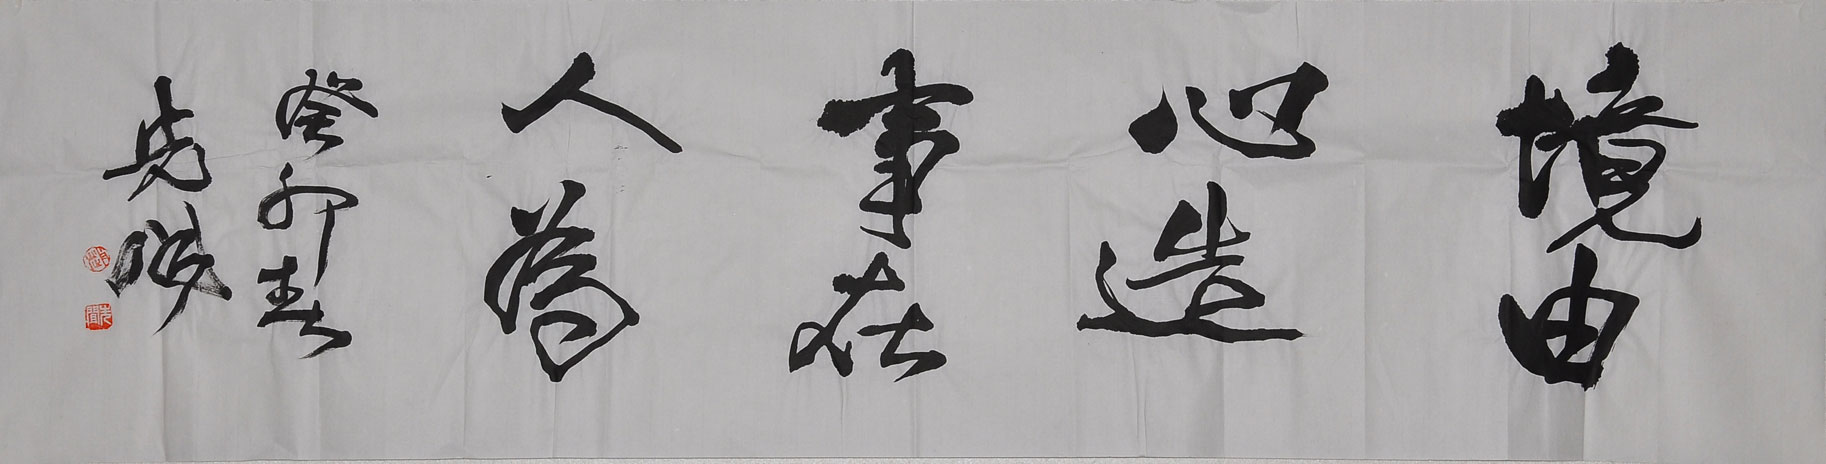 境由
心造
事在
人為
癸卯春
先